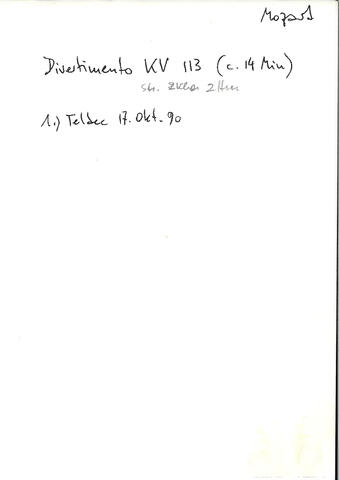 Mozart
Divertimento KV 113 (c. 14 Min)
Str. 2Klar 2Hrn
1.) Teldec 17. Okt. 90